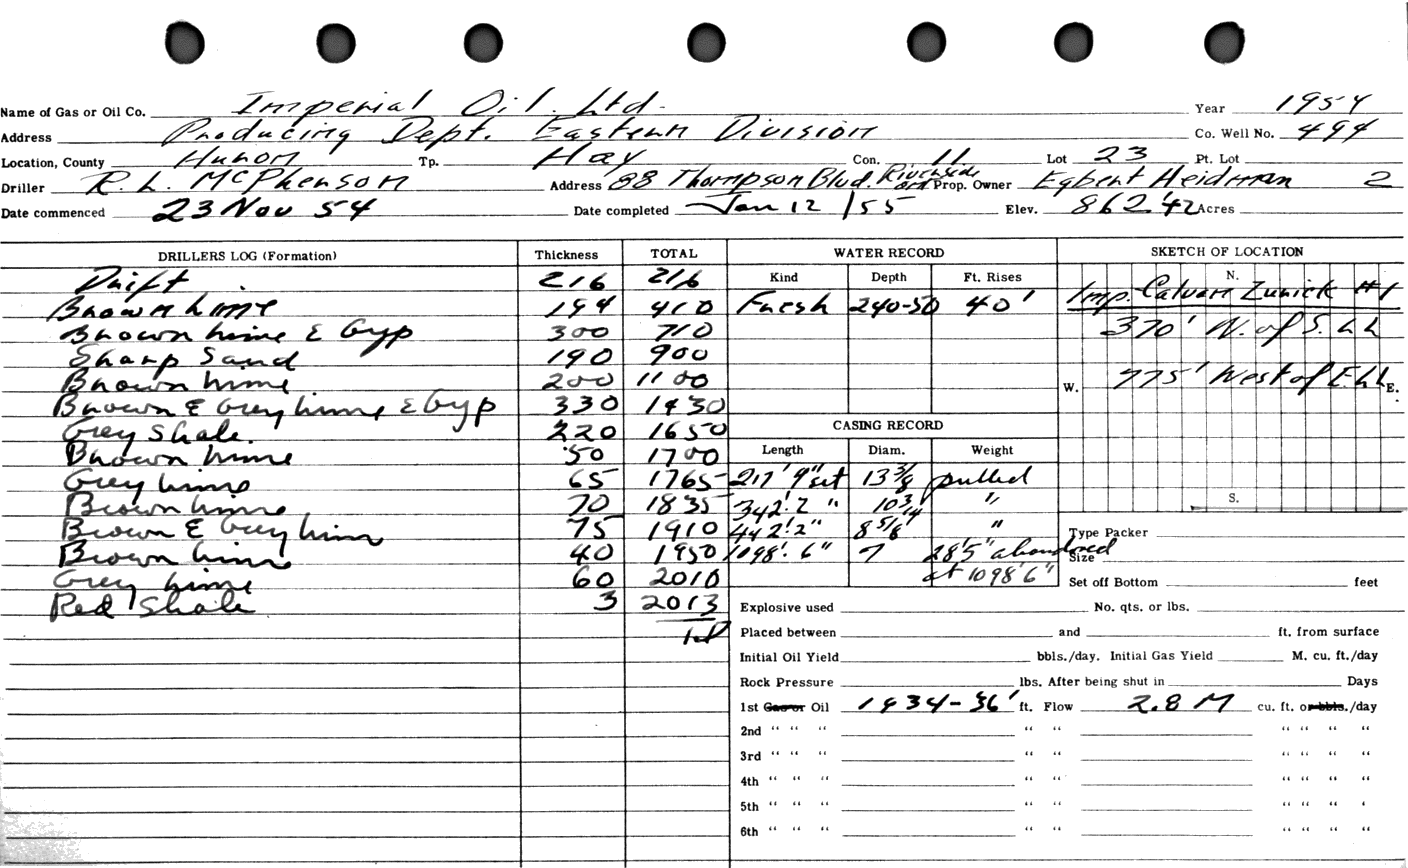 Name of Gas or Oil Co. Imperial Oil. Ltd. Year 1954
Address Producing Dept. Eastern Division Co. Well No. 494
Location, County Huron Tp. Hay Con. 11 Lot 23 Pt. Lot
Driller R. L. McPherson Address 88 Thompson Blvd. Riverside Ont Prop. Owner Egbert Heidman 2
Date commenced 23 Nov 54 Date completed Jan 12 /55 Elev. 862.42 Acres
DRILLERS LOG (Formation) Thickness TOTAL WATER RECORD SKETCH OF LOCATION
Kind Depth Ft. Rises N.
Drift 216 216
Brown Lime 194 410 Fresh 240-50 40' Imp-Calvan Zurick #1
Brown Lime & Gyp 300 710 370' N. of S. LL
Sharp Sand 190 900
Brown Lime 200 1100 W. 775' West of E LL E.
Brown & Grey Lime & Gyp 330 1430
Grey Shale. 220 1650 CASING RECORD
Length Diam. Weight
Brown Lime 50 1700
Grey Lime 65 1765 217' 9" set 13 3/8 pulled
Brown Lime 70 1835 342' 2" 10 3/4 " S.
Brown & Grey Lime 75 1910 442' 2" 8 5/8 " Type Packer
Brown Lime 40 1950 1098' 6" 7 28'5" abandoned Size
Grey Lime 60 2010 at 1098'6" Set off Bottom feet
Red Shale 3 2013 Explosive used No. qts. or lbs.
Td Placed between and ft. from surface
Initial Oil Yield bbls./day. Initial Gas Yield M. cu. ft./day
Rock Pressure lbs. After being shut in Days
1st Gas or Oil 1934-36' ft. Flow 2.8 M cu. ft. or bbls./day
2nd " " " " " " " " "
3rd " " " " " " " " "
4th " " " " " " " " "
5th " " " " " " " " '
6th " " " " " " " " "